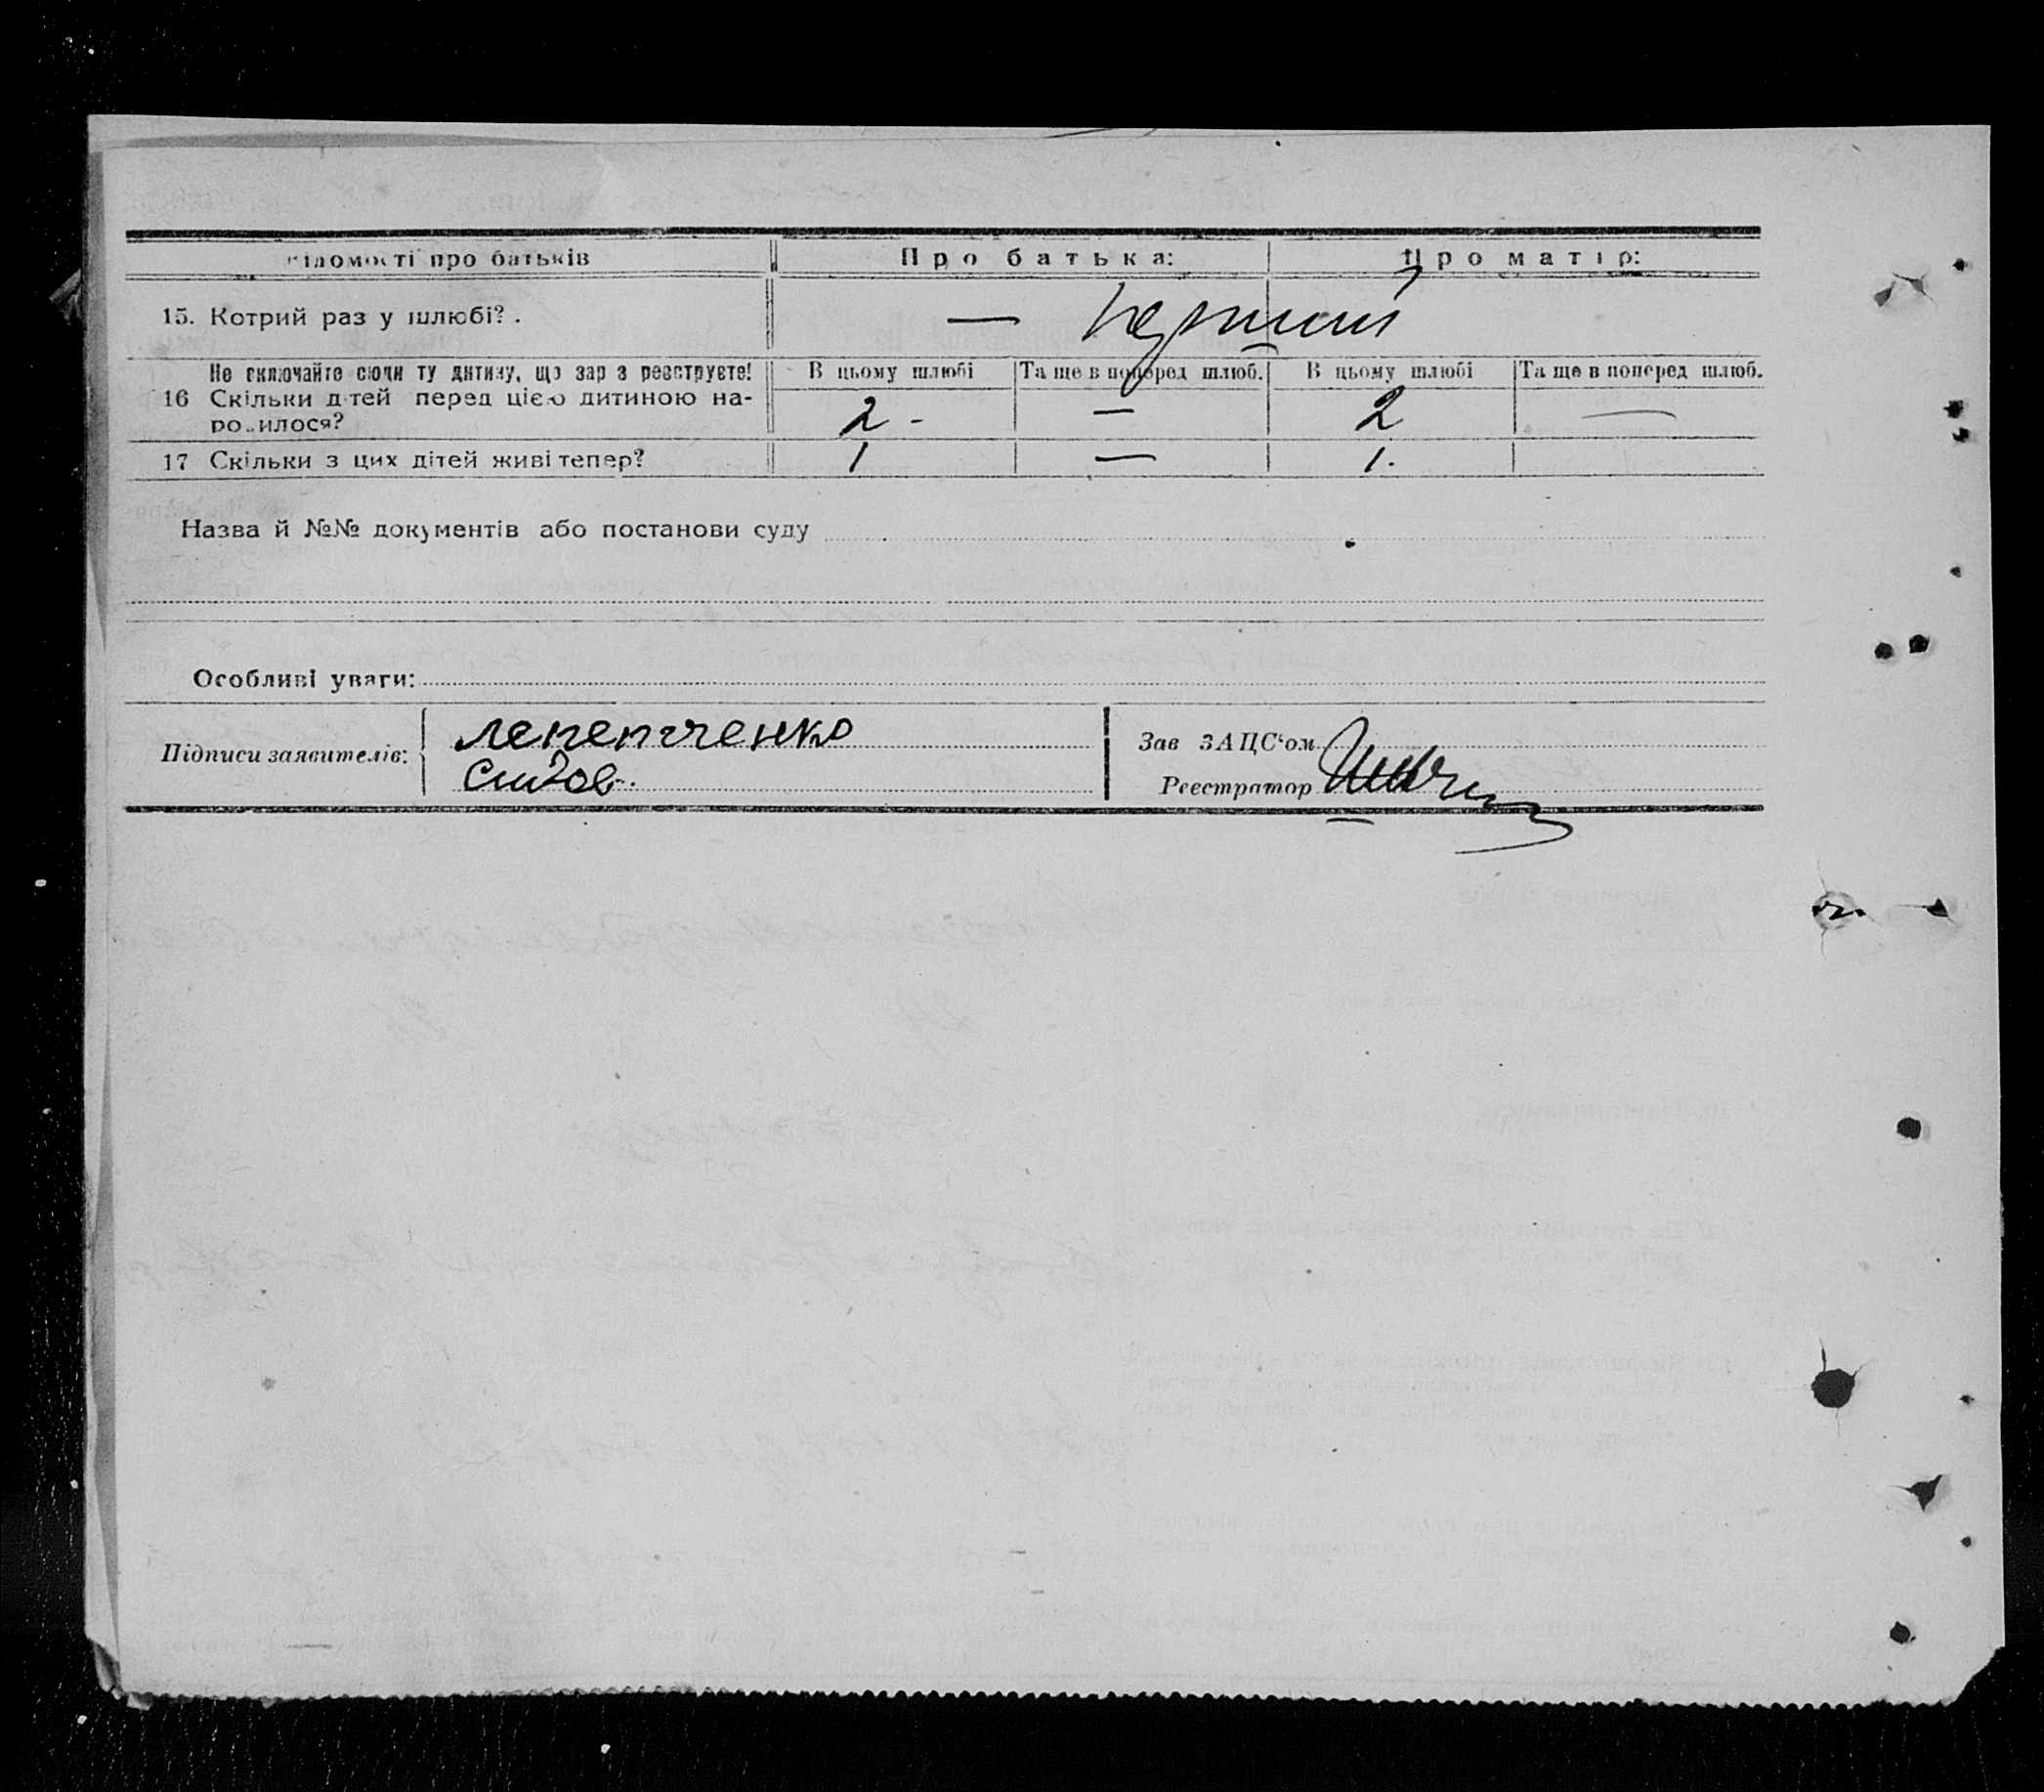 Відомості про батьків Про батька: Про матір:
15. Котрий раз у шлюбі?. — перший
Не включайте сюди ту дитину, що зараз реєструєте! В цьому шлюбі Та ще в поперед шлюб. В цьому шлюбі Та ще в поперед шлюб.
16 Скільки дітей перед цією дитиною на-
родилося? 2 - — 2 —
17 Скільки з цих дітей живі тепер? 1 — 1.
Назва й №№ документів або постанови суду
Особливі уваги:
Підписи заявителів: Зав ЗАЦС‘ом
Реєстратор